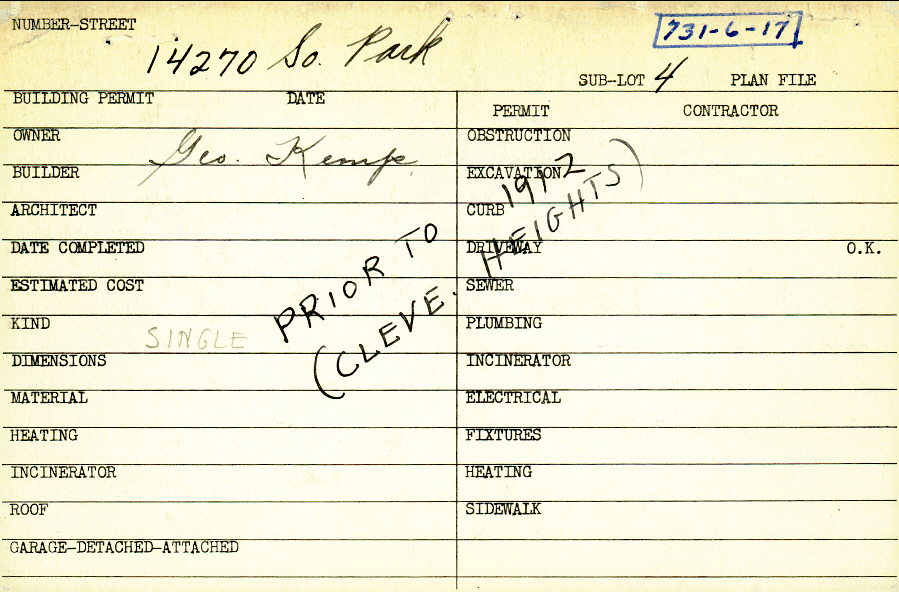 NUMBER-STREET
14270 So. Park
731-6-17
SUB-LOT 4 PLAN FILE
BUILDING PERMIT DATE
PERMIT CONTRACTOR
OWNER Geo. Kemp
OBSTRUCTION
BUILDER
EXCAVATION
ARCHITECT
CURB
DATE COMPLETED
DRIVEWAY O.K.
ESTIMATED COST
SEWER
KIND SINGLE
PLUMBING
DIMENSIONS
INCINERATOR
MATERIAL
ELECTRICAL
HEATING
FIXTURES
INCINERATOR
HEATING
ROOF
SIDEWALK
GARAGE-DETACHED-ATTACHED
PRIOR TO 1912
(CLEVE. HEIGHTS)